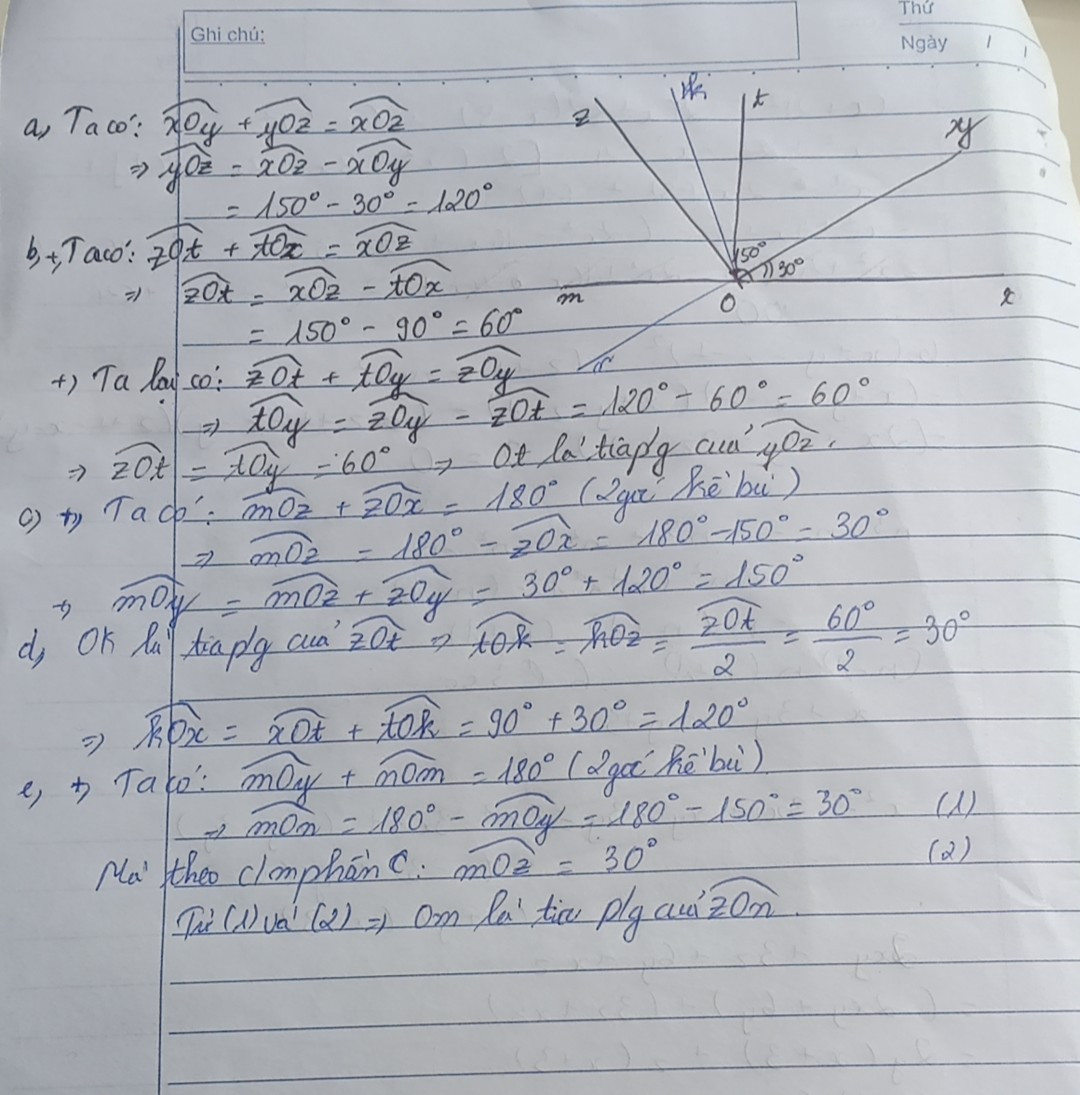 Ghi chú:
Thứ
Ngày / /
z k t xy
50° 30°
m O x
n
a, Ta có: xOy + yOz = xOz
⇒ yOz = xOz - xOy
= 150° - 30° = 120°
b, +, Ta có: zOt + tOx = xOz
⇒ zOt = xOz - tOx
= 150° - 90° = 60°
+) Ta lại có: zOt + tOy = zOy
⇒ tOy = zOy - zOt = 120° - 60° = 60°
⇒ zOt = tOy = 60° ⇒ Ot là tia p/g của yOz.
c) +) Ta có: mOz + zOx = 180° (2 góc kề bù)
⇒ mOz = 180° - zOx = 180° - 150° = 30°
+, mOy = mOz + zOy = 30° + 120° = 150°
d, OK là tia p/g của zOt ⇒ tOk = kOz = zOt/2 = 60°/2 = 30°
⇒ kOx = xOt + tOk = 90° + 30° = 120°
e, +, Ta có: mOy + nOm = 180° (2 góc kề bù)
⇒ mOn = 180° - mOy = 180° - 150° = 30° (1)
Mà theo c/m phần C: mOz = 30° (2)
Từ (1) và (2) ⇒ Om là tia p/g của zOn.